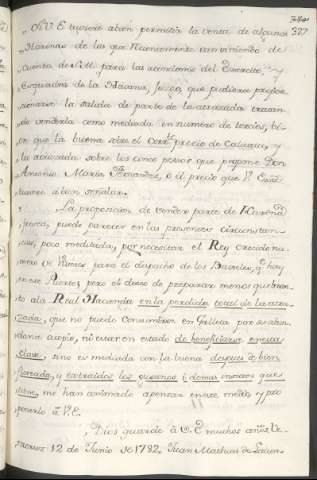 327
„ Si V.E tuviere abien permitir la venta de algunas
„ Harinas de las que Nuevamente van viniendo de
„ Cuenta de S.M. para las atenciones del Exercito, y
„ Esquadra de la Havana, Juzgo, que pudiera propor
„ cionarse la salida de parte de la averiada tratan-
„ do venderla como mediada en numero de tercios, bi-
„ en que la buena sobre el corrte precio de Calupan, y
„ la averiada sobre los cinco pesos que propone Don
„ Antonio Maria Fernandez, o el precio que V. E
„ tuviere a bien señalar.
„ La proposicion de vender parte de Harina
„ fresca, puede parecer en las presentes circunstan-
„ cias, poco meditada, por necesitar el Rey crecido nu-
„ mero de Viveres para el despacho de los Baxeles, qe hay
„ en este Puerto; pero el deseo de preparar menos quebran-
„ to ala Real Hacienda en la perdida total de la averi-
„ ada, que no puede consumirse en Galleta por
„ acopio, ni estar en estado de beneficiarse en esta
„ clase, sino es mediada con la buena despues de bien
„ y extraidos los gusanos i demas insectos que
„ tiene, me han animado apensar eneste medio, y pro
„ ponerlo á V.E.
„ Dios guarde á V. E muchos años. Ve-
racruz 12 de Junio de 1782. Juan Mathias de